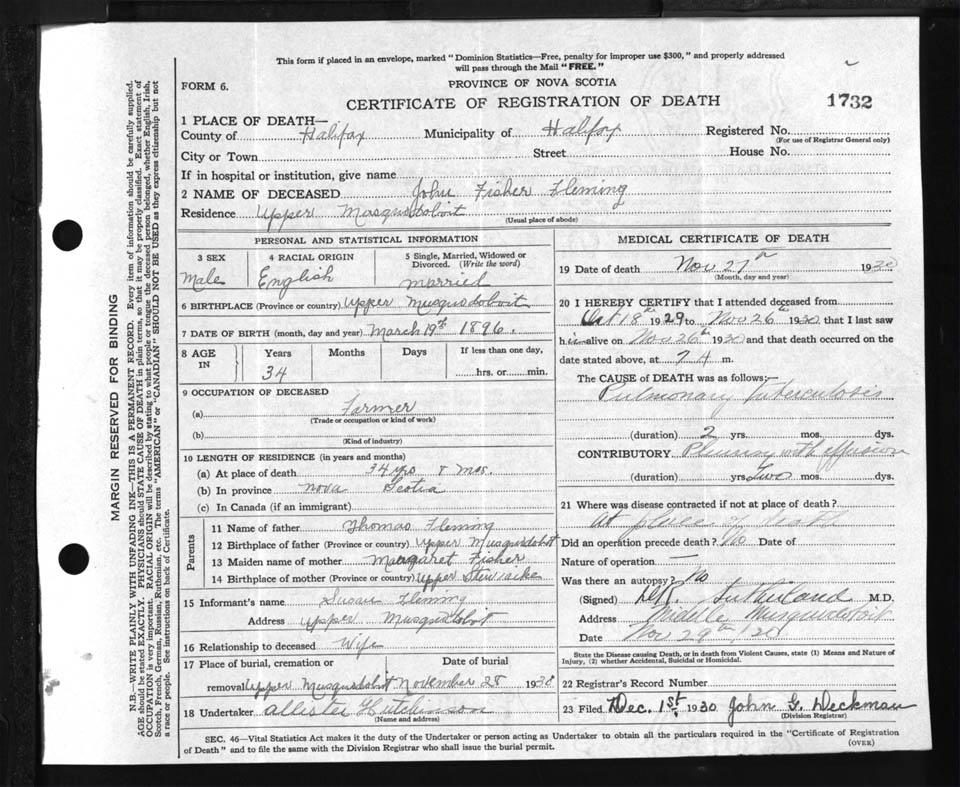 This form if placed in an envelope, marked "Dominion Statistics—Free, penalty for improper use $300," and properly addressed
will pass through the Mail "FREE."
FORM 6.
PROVINCE OF NOVA SCOTIA
CERTIFICATE OF REGISTRATION OF DEATH
1732
1 PLACE OF DEATH—
County of Halifax Municipality of Halifax Registered No.
(For use of Registrar General only)
City or Town Street House No.
If in hospital or institution, give name
2 NAME OF DECEASED John Fisher Fleming
Residence Upper Musquodoboit
(Usual place of abode)
PERSONAL AND STATISTICAL INFORMATION
3 SEX 4 RACIAL ORIGIN 5 Single, Married, Widowed or
Divorced. (Write the word)
Male English Married
6 BIRTHPLACE (Province or country) Upper Musquodoboit
7 DATE OF BIRTH (month, day and year) March 19th 1896.
8 AGE IN Years Months Days If less than one day,
34 hrs. or min.
9 OCCUPATION OF DECEASED
(a) Farmer
(Trade or occupation or kind of work)
(b)
(Kind of industry)
10 LENGTH OF RESIDENCE (in years and months)
(a) At place of death 34 yrs 8 mos.
(b) In province Nova Scotia
(c) In Canada (if an immigrant)
Parents
11 Name of father Thomas Fleming
12 Birthplace of father (Province or country) Upper Musquodoboit
13 Maiden name of mother Margaret Fisher
14 Birthplace of mother (Province or country) Upper Stewiacke
15 Informant's name Susan Fleming
Address Upper Musquodoboit
16 Relationship to deceased Wife
17 Place of burial, cremation or Date of burial
removal Upper Musquodoboit November 28 1930
18 Undertaker Allister Hutchinson
(Name and address)
MEDICAL CERTIFICATE OF DEATH
19 Date of death Nov 27th 1930
(Month, day and year)
20 I HEREBY CERTIFY that I attended deceased from
Oct 18th 1929 to Nov 26th 1930 that I last saw
him alive on Nov 26th 1930 and that death occurred on the
date stated above, at 7 A m.
The CAUSE of DEATH was as follows:—
Pulmonary Tuberculosis
(duration) 2 yrs. mos. dys.
CONTRIBUTORY. Pleurisy with effusion
(duration) yrs. Two mos. dys.
21 Where was disease contracted if not at place of death?
At place of death
Did an operation precede death? No Date of
Nature of operation —
Was there an autopsy? No
(Signed) Sutherland M.D.
Address Middle Musquodoboit
Date Nov 29th/30
State the Disease causing Death, or in death from Violent Causes, state (1) Means and Nature of
Injury, (2) whether Accidental, Suicidal or Homicidal.
22 Registrar's Record Number
23 Filed Dec. 1st 1930 John G. Deckman
(Division Registrar)
SEC. 46—Vital Statistics Act makes it the duty of the Undertaker or person acting as Undertaker to obtain all the particulars required in the "Certificate of Registration
of Death" and to file the same with the Division Registrar who shall issue the burial permit.
(OVER)
MARGIN RESERVED FOR BINDING
N.B.—WRITE PLAINLY WITH UNFADING INK—THIS IS A PERMANENT RECORD. Every item of information should be carefully supplied.
AGE should be stated EXACTLY. PHYSICIANS should STATE CAUSE OF DEATH in plain terms, so that it may be properly classified. Exact statement of
OCCUPATION is very important. RACIAL ORIGIN will be described by stating to what people or tongue the deceased person belonged, whether English, Irish,
Scotch, French, German, Russian, Ruthenian, etc. The terms "AMERICAN" or "CANADIAN" SHOULD NOT BE USED as they express citizenship but not
a race or people. See instructions on back of Certificate.